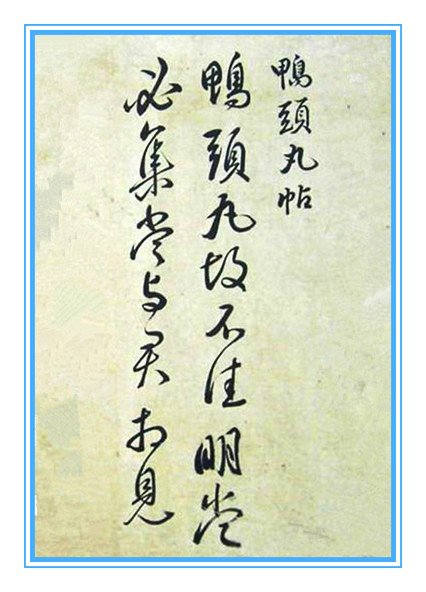 鴨頭丸帖
鴨頭丸故不佳明當
必集當与君相見